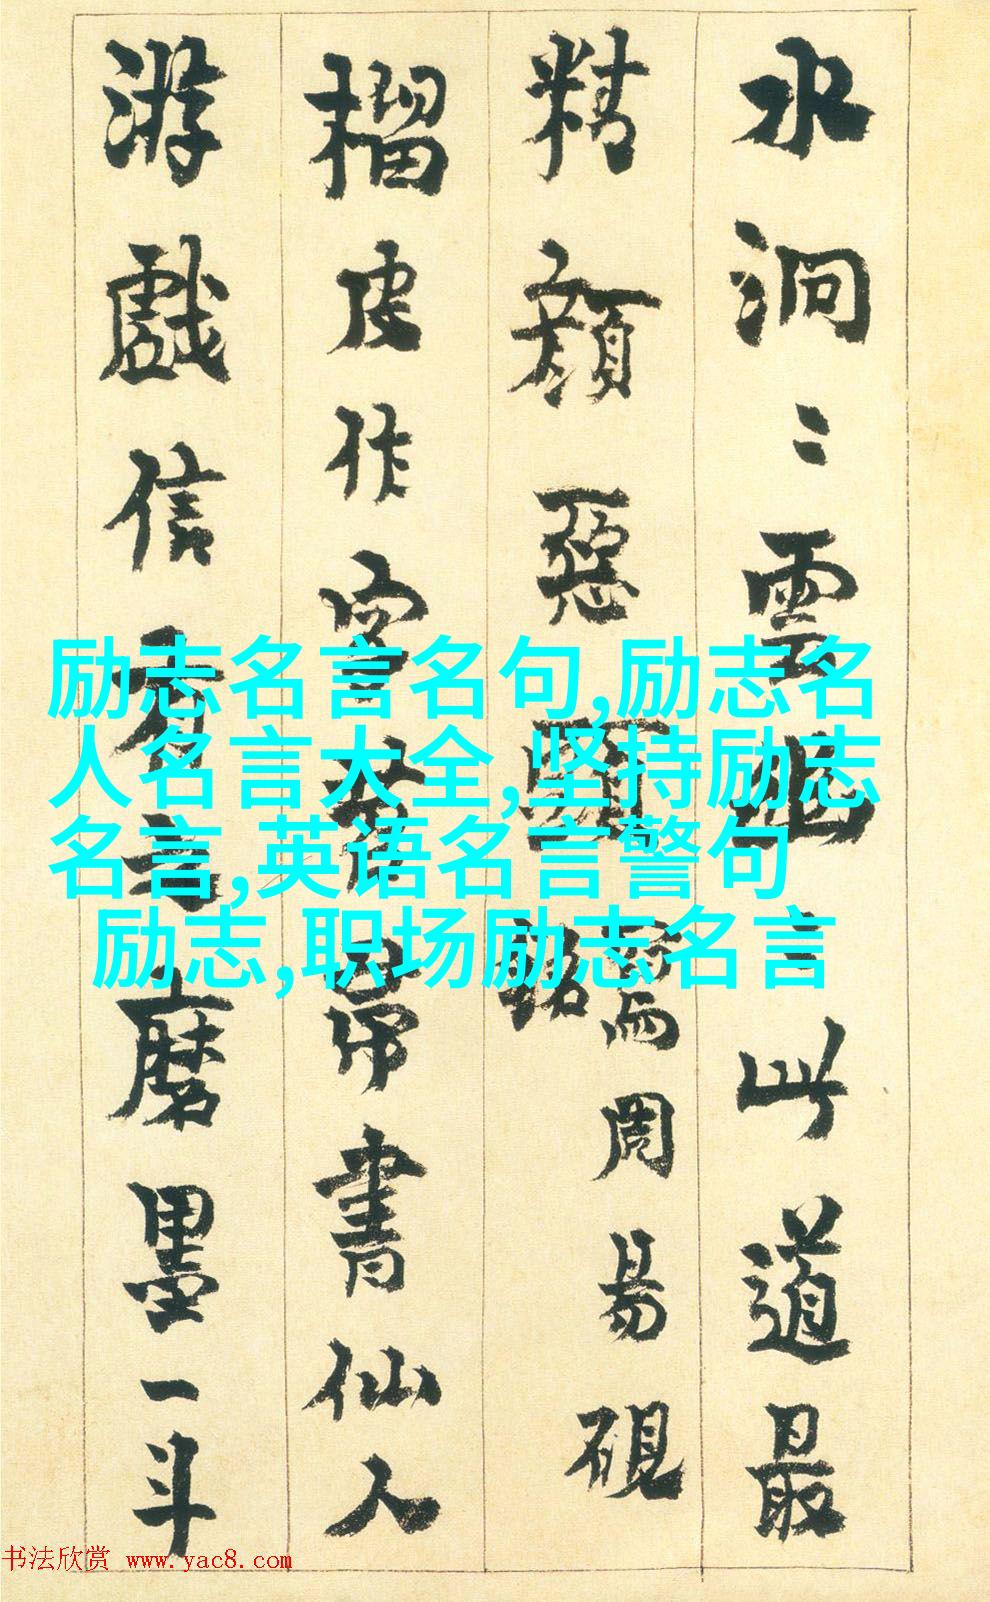 水洞〻雲幽言此道最
精顏惡頭寫周易硯
銘
榴皮作字安帚書仙人
游戲信有之磨墨一斗
励志名言名句,励志名
人名言大全,坚持励志
名言,英语名言警句
励志,职场励志名言
书法欣赏 www.yac8.com